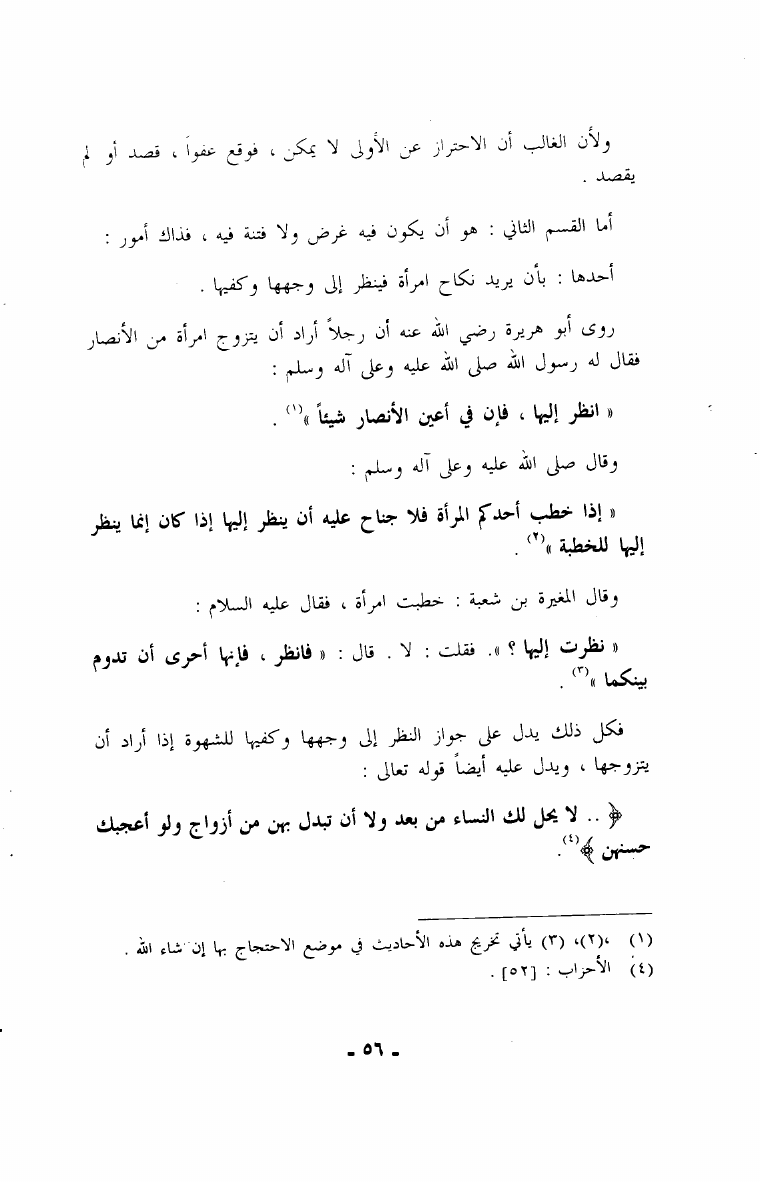 ولأن الغالب أن الاحتراز عن الأولى لا يمكن ، فوقع عفواً ، قصد أو لم
يقصد .
أما القسم الثاني : هو أن يكون فيه غرض ولا فتنة فيه ، فذاك أمور :
أحدها : بأن يريد نكاح امرأة فينظر إلى وجهها وكفيها .
روى أبو هريرة رضي الله عنه أن رجلاً أراد أن يتزوج امرأة من الأنصار
فقال له رسول الله صلى الله عليه وعلى آله وسلم :
« انظر إليها ، فإن في أعين الأنصار شيئاً »(١) .
وقال صلى الله عليه وعلى آله وسلم :
« إذا خطب أحدكم المرأة فلا جناح عليه أن ينظر إليها إذا كان إنما ينظر
إليها للخطبة »(٢) .
وقال المغيرة بن شعبة : خطبت امرأة ، فقال عليه السلام :
« نظرت إليها ؟ ». فقلت : لا . قال : « فانظر ، فإنها أحرى أن تدوم
بينكما »(٣) .
فكل ذلك يدل على جواز النظر إلى وجهها وكفيها للشهوة إذا أراد أن
يتزوجها ، ويدل عليه أيضاً قوله تعالى :
﴿ .. لا يحل لك النساء من بعد ولا أن تبدل بهن من أزواج ولو أعجبك
حسنهن ﴾(٤).
(١) ،(٢)، (٣) يأتي تخريج هذه الأحاديث في موضع الاحتجاج بها إن شاء الله .
(٤) الأحزاب : [٥٢] .
- ٥٦ -